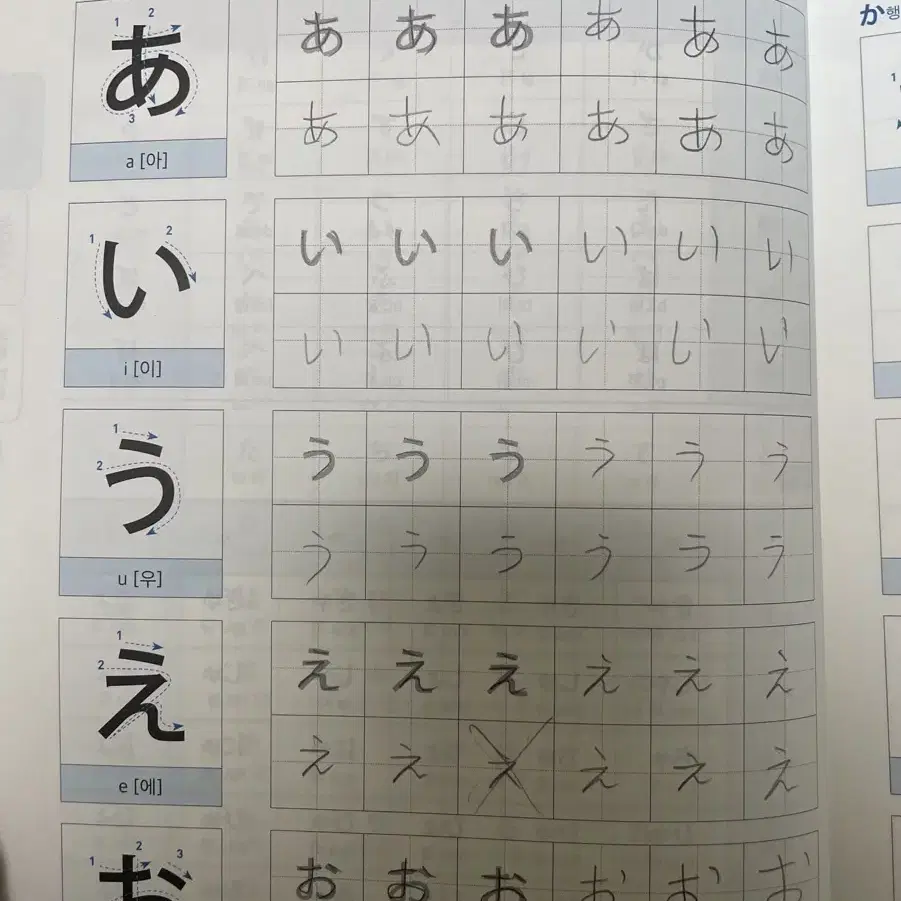 か행
1 2
あ
3
a [아]
あ あ あ あ あ あ
あ あ あ あ あ あ
1
1 2
い
i [이]
い い い い い い
い い い い い い
1
2
う
u [우]
う う う う う う
う う う う う う
1
2
え
e [에]
え え え え え え
え え え え え え
1 2 3
お
お お お お お お